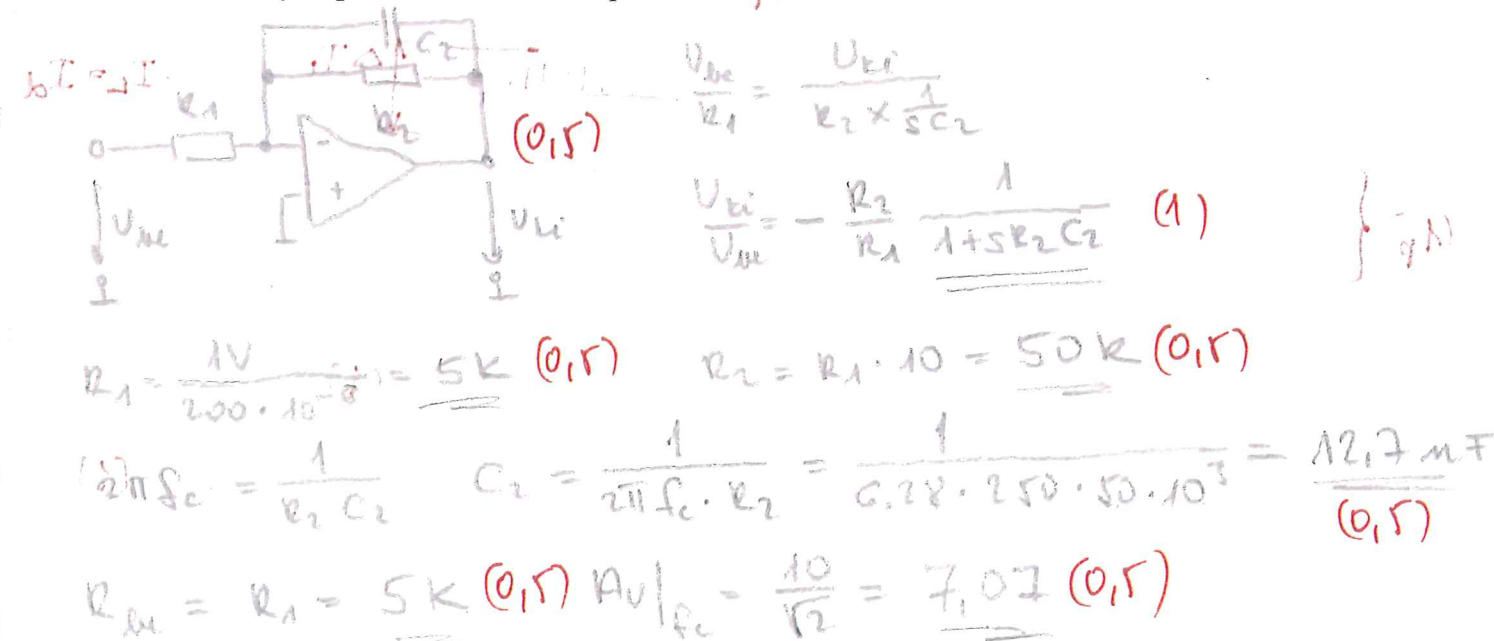 C₂
R₁
R₂
(0,5)
-
+
U_be
U_ki
U_be/R₁ = U_ki/(R₂ × 1/(sC₂))
U_ki/U_be = - R₂/R₁ 1/(1+sR₂C₂) (1)
R₁ = 1V/(200·10⁻⁶) = 5k (0,5) R₂ = R₁·10 = 50k (0,5)
2πf_c = 1/(R₂C₂) C₂ = 1/(2πf_c·R₂) = 1/(6.28·250·50·10³) = 12,7nF (0,5)
R_be = R₁ = 5k (0,5) Au|f_c = 10/√2 = 7,07 (0,5)